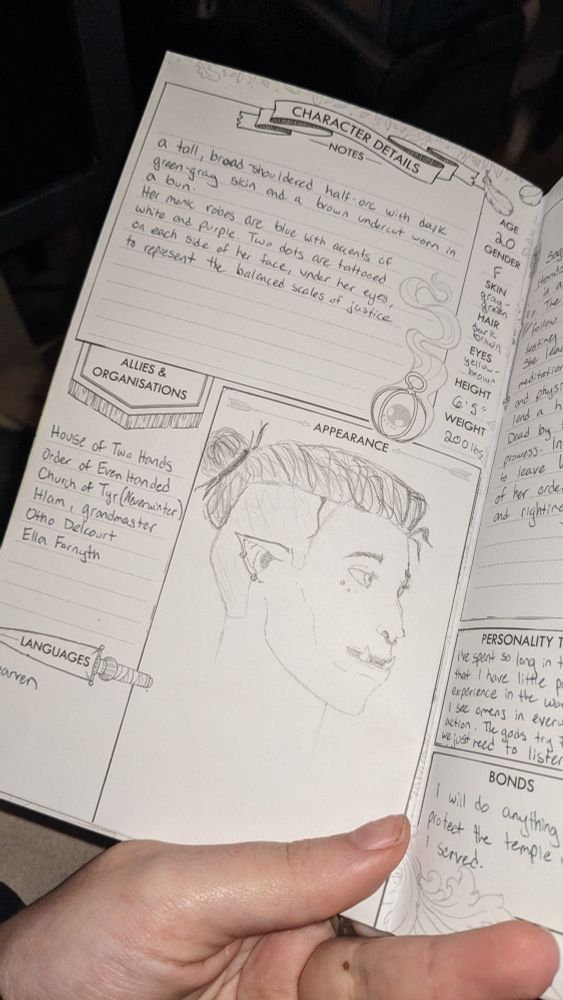 CHARACTER DETAILS
NOTES
a tall, broad-shouldered half-orc with dark
green-gray skin and a brown undercut worn in
a bun.
Her monk robes are blue with accents of
white and purple. Two dots are tattooed
on each side of her face, under her eyes,
to represent the balanced scales of justice
AGE
20
GENDER
F
SKIN
gray-
green
HAIR
dark
brown
EYES
yellow-
brown
HEIGHT
6'5"
WEIGHT
200 lbs.
ALLIES &
ORGANISATIONS
House of Two Hands
Order of Even Handed
Church of Tyr (Neverwinter)
Hlam, grandmaster
Otho Delcourt
Ella Fornyth
LANGUAGES
APPEARANCE
in a
The
follow
testing
She lea
meditation
and phys
lend a h
Dead by
prowess. In
to leave
of her orde
and rightin
PERSONALITY T
I've spent so long in t
that I have little p
experience in the wo
I see omens in every
action. The gods try t
we just need to listen
BONDS
I will do anything
protect the temple
I served.